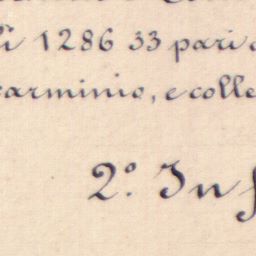 1286 33 pari
carminio, e colle
2.° In